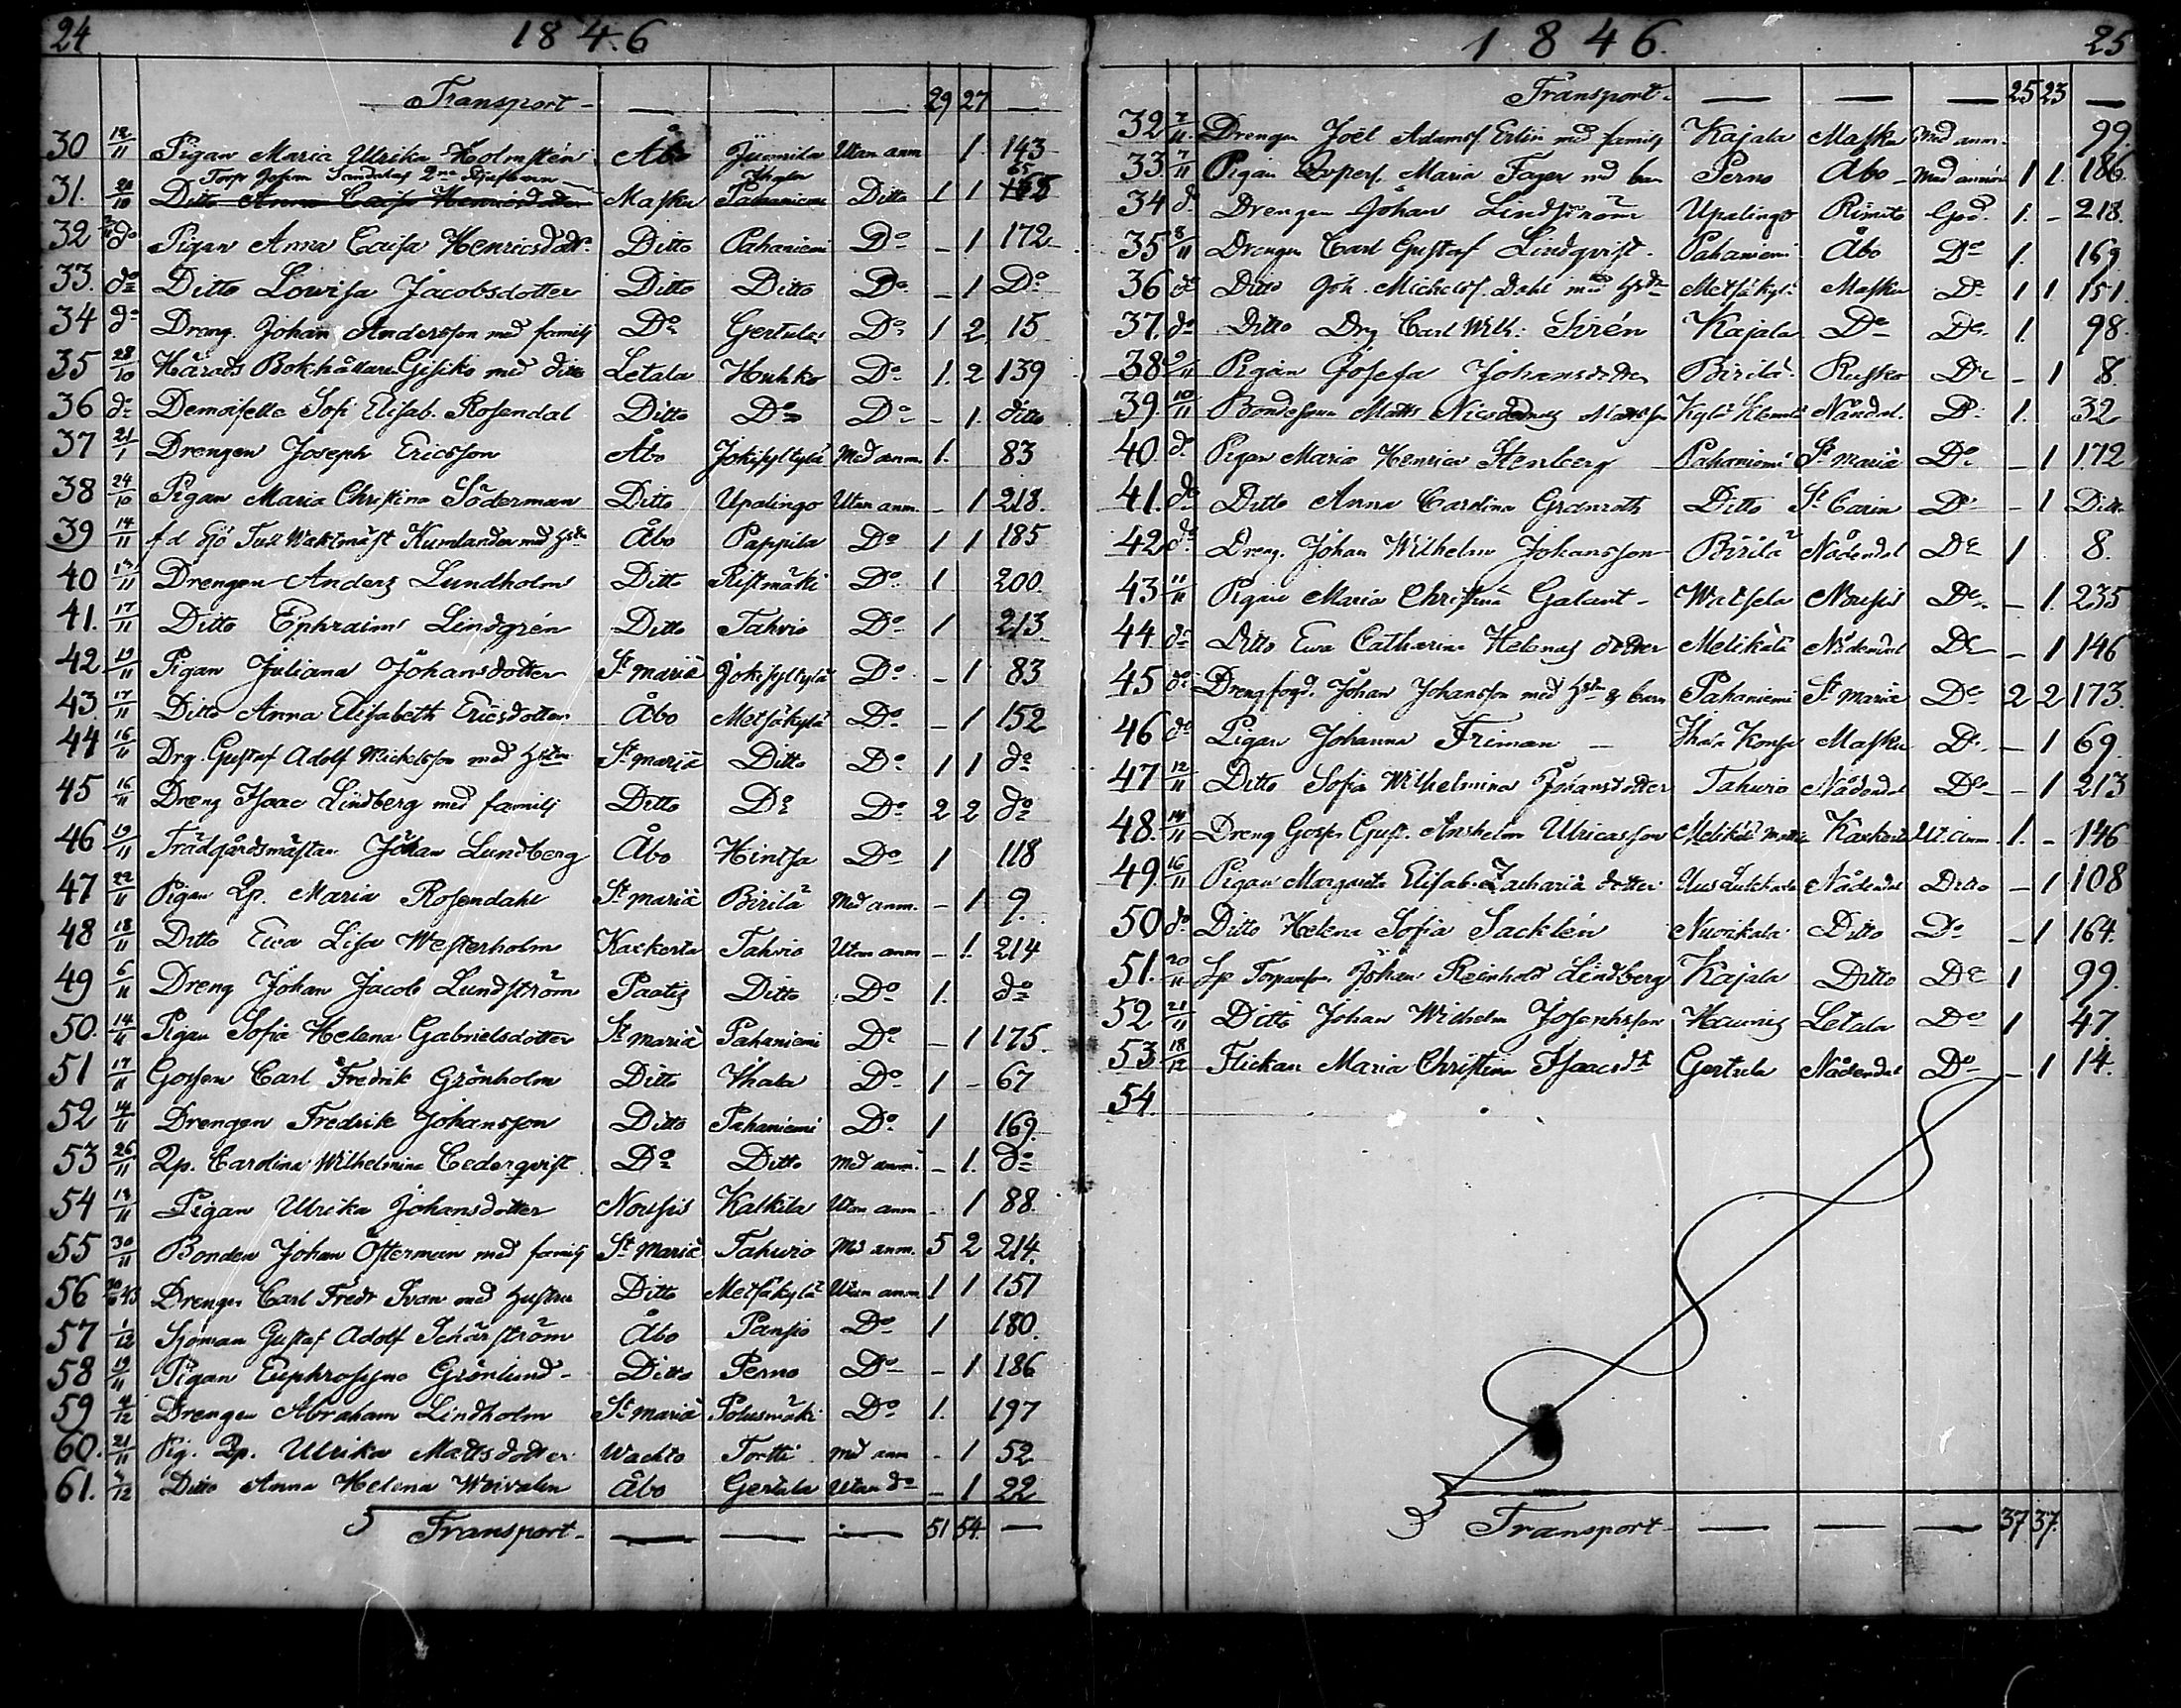 24 1846
Transport - — — — 29 27 —
30 12/11 Pigan Maria Ulrika Holmstén Åbo Juonila Utan anm 1 143
Torp Josva Sandelas 2ne Ihala 65
31. 20/10 Ditto Anna Caisa Henricsdotter Masku Pahaniemi Ditto 1 1
32 do Pigan Anna Caisa Henricsdotr Ditto Pahaniemi Do - 1 172
33. do Ditto Lovisa Jacobsdotter Ditto Ditto Do - 1 Do
34 do Dräng. Johan Andersson med familj Do Gertula Do 1 2 15
35 28/10 Härads Bokhållare Gisiko med ditto Letala Huhko Do 1. 2 139
36 do Demoiselle Sofi Elisab. Rosendal Ditto Do Do - 1. ditto
37 21/1 Drengen Joseph Ericsson Åbo Jokisyltylä Med anm. 1. 83
38 24/10 Pigan Maria Christina Söderman Ditto Upalingo Utan anm. - 1 218.
39 14/11 f d Sjö Tull Waktmäst Kumlander med Hstr Åbo Pappila Do 1 1 185
40 13/11 Drengen Anders Lundholm Ditto Ristmäki Do 1 200.
41. 17/11 Ditto Ephraim Lindgrén Ditto Tahvio Do 1 213
42 19/11 Pigan Juliana Johansdotter St Mariæ Jokisyltylä Do - 1 83
43. 17/11 Ditto Anna Elisabeth Ericsdotter Åbo Metsäkylä Do - 1 152
44 16/11 Drg. Gustaf Adolf Mickelsson med Hstru St Mariæ Ditto Do 1 1 do
45 16/11 Dreng Isaac Lindberg med familj Ditto Do Do 2 2 do
46 19/11 Trädgårdsmästar Johan Lundberg Åbo Hintsa Do 1 118
47 22/11 Pigan Qp. Maria Rosendahl St Mariæ Birilä Med anm. - 1 9.
48 18/11 Ditto Ewa Lisa Westerholm Kackerta Tahvio Utan anm - 1. 214
49 6/11 Dreng Johan Jacob Lundström Paatis Ditto Do 1. do
50. 14/11 Pigan Sofia Helena Gabrielsdotter St Mariæ Pahaniemi Do - 1 175.
51 17/11 Gossen Carl Fredrik Grönholm Ditto Ihala Do 1 - 67
52 14/11 Drengen Fredrik Johansson Ditto Pahaniemi Do 1 169.
53 26/11 Qp. Carolina Wilhelmina Cederqvist Do Ditto Med anm. - 1. do
54 13/11 Pigan Ulrika Johansdotter Nousis Kalkila Utan anm - 1 88.
55 30/11 Bonden Johan Österman med familj St Mariæ Tahvio Med anm. 5 2 214.
56 Drengen Carl Fredr Ivan med hustru Ditto Metsäkylä Utan anm 1 1 151
57 1/12 Sjöman Gustaf Adolf Schärström Åbo Pansio Do 1 180.
58 19/11 Pigan Euphrosyna Grönlund - Ditto Perno Do - 1 186
59 4/12 Drengen Abraham Lindholm St Mariæ Polusmäki Do 1. 197
60. 21/11 Pig. Qp. Ulrika Mattsdotter Wachto Tortti Med anm - 1 52
61. Ditto Anna Helena Woivalin Åbo Gertula Utan do - 1 22
Transport - — — — 51 54. —
1846. 25
Transport - — — — 25 23 —
32 7/11 Drengen Joel Adamss. Erlin med familj Kajala Masku Med anm. 99.
33 7/11 Pigan Qvpers. Maria Fager med barn Perno Åbo Med anm 1 1. 186.
34 do Drengen Johan Lindström Upalingo Rimito God. 1. - 218.
35 8/11 Drengen Carl Gustaf Lindqvist. Pahaniemi Åbo Do 1. 169
36 do Ditto Joh. Michelss. Dahl med Hstru Metsäkylä Masku Do 1 1 151.
37. do Ditto Drg Carl Wilh. Sirén Kajala Do Do 1. 98.
38 2/11 Pigan Josefa Johansdotter Birilä Rusko Do - 1 8.
39. 10/11 Bondesonen Matts Nicodemus Mattsson Kylä Klemola Nådendal. Do 1. 32
40. do Pigan Maria Henrica Stenberg Pahaniemi St Mariæ Do - 1 172
41. do Ditto Anna Carolina Granroth Ditto St Carin Do - 1 Ditto
42 do Dreng. Johan Wilhelm Johansson Birilä Nådendal Do 1 8.
43 11/11 Pigan Maria Christina Galant - Watsela Nousis Do - 1. 235
44. do Ditto Ewa Catharina Helenas dotter Melikälä Nådendal Do - 1 146
45 do Drengfogd. Johan Johansson med Hstru & barn Pahaniemi St Mariæ Do 2 2 173.
46 do Pigan Johanna Friman — Ihala Konsa Masku Do - 1 69.
47 12/11 Ditto Sofia Wilhelmina Johansdotter Tahvio Nådendal Do - 1 213
48. 14/11 Dreng Goss. Gust. Anshelm Ulricasson Melikälä Kackerta Ut. anm. 1. - 146
49. 16/11 Pigan Margareta Elisab. Zachariæ dotter Nådendal Ditto - 1 108
50 do Ditto Helena Sofia Sacklén Nuorikala Ditto Do - 1 164.
51. 20/11 Johan Reinhold Lindberg Kajala Ditto Do 1 99.
52 21/11 Ditto Johan Wilhelm Josephsson Haunis Letala Do 1 47.
53. 18/12 Flickan Maria Christina Isaacsdr Gertula Nådendal Do - 1 14.
54.
Transport - — — — 37 37.